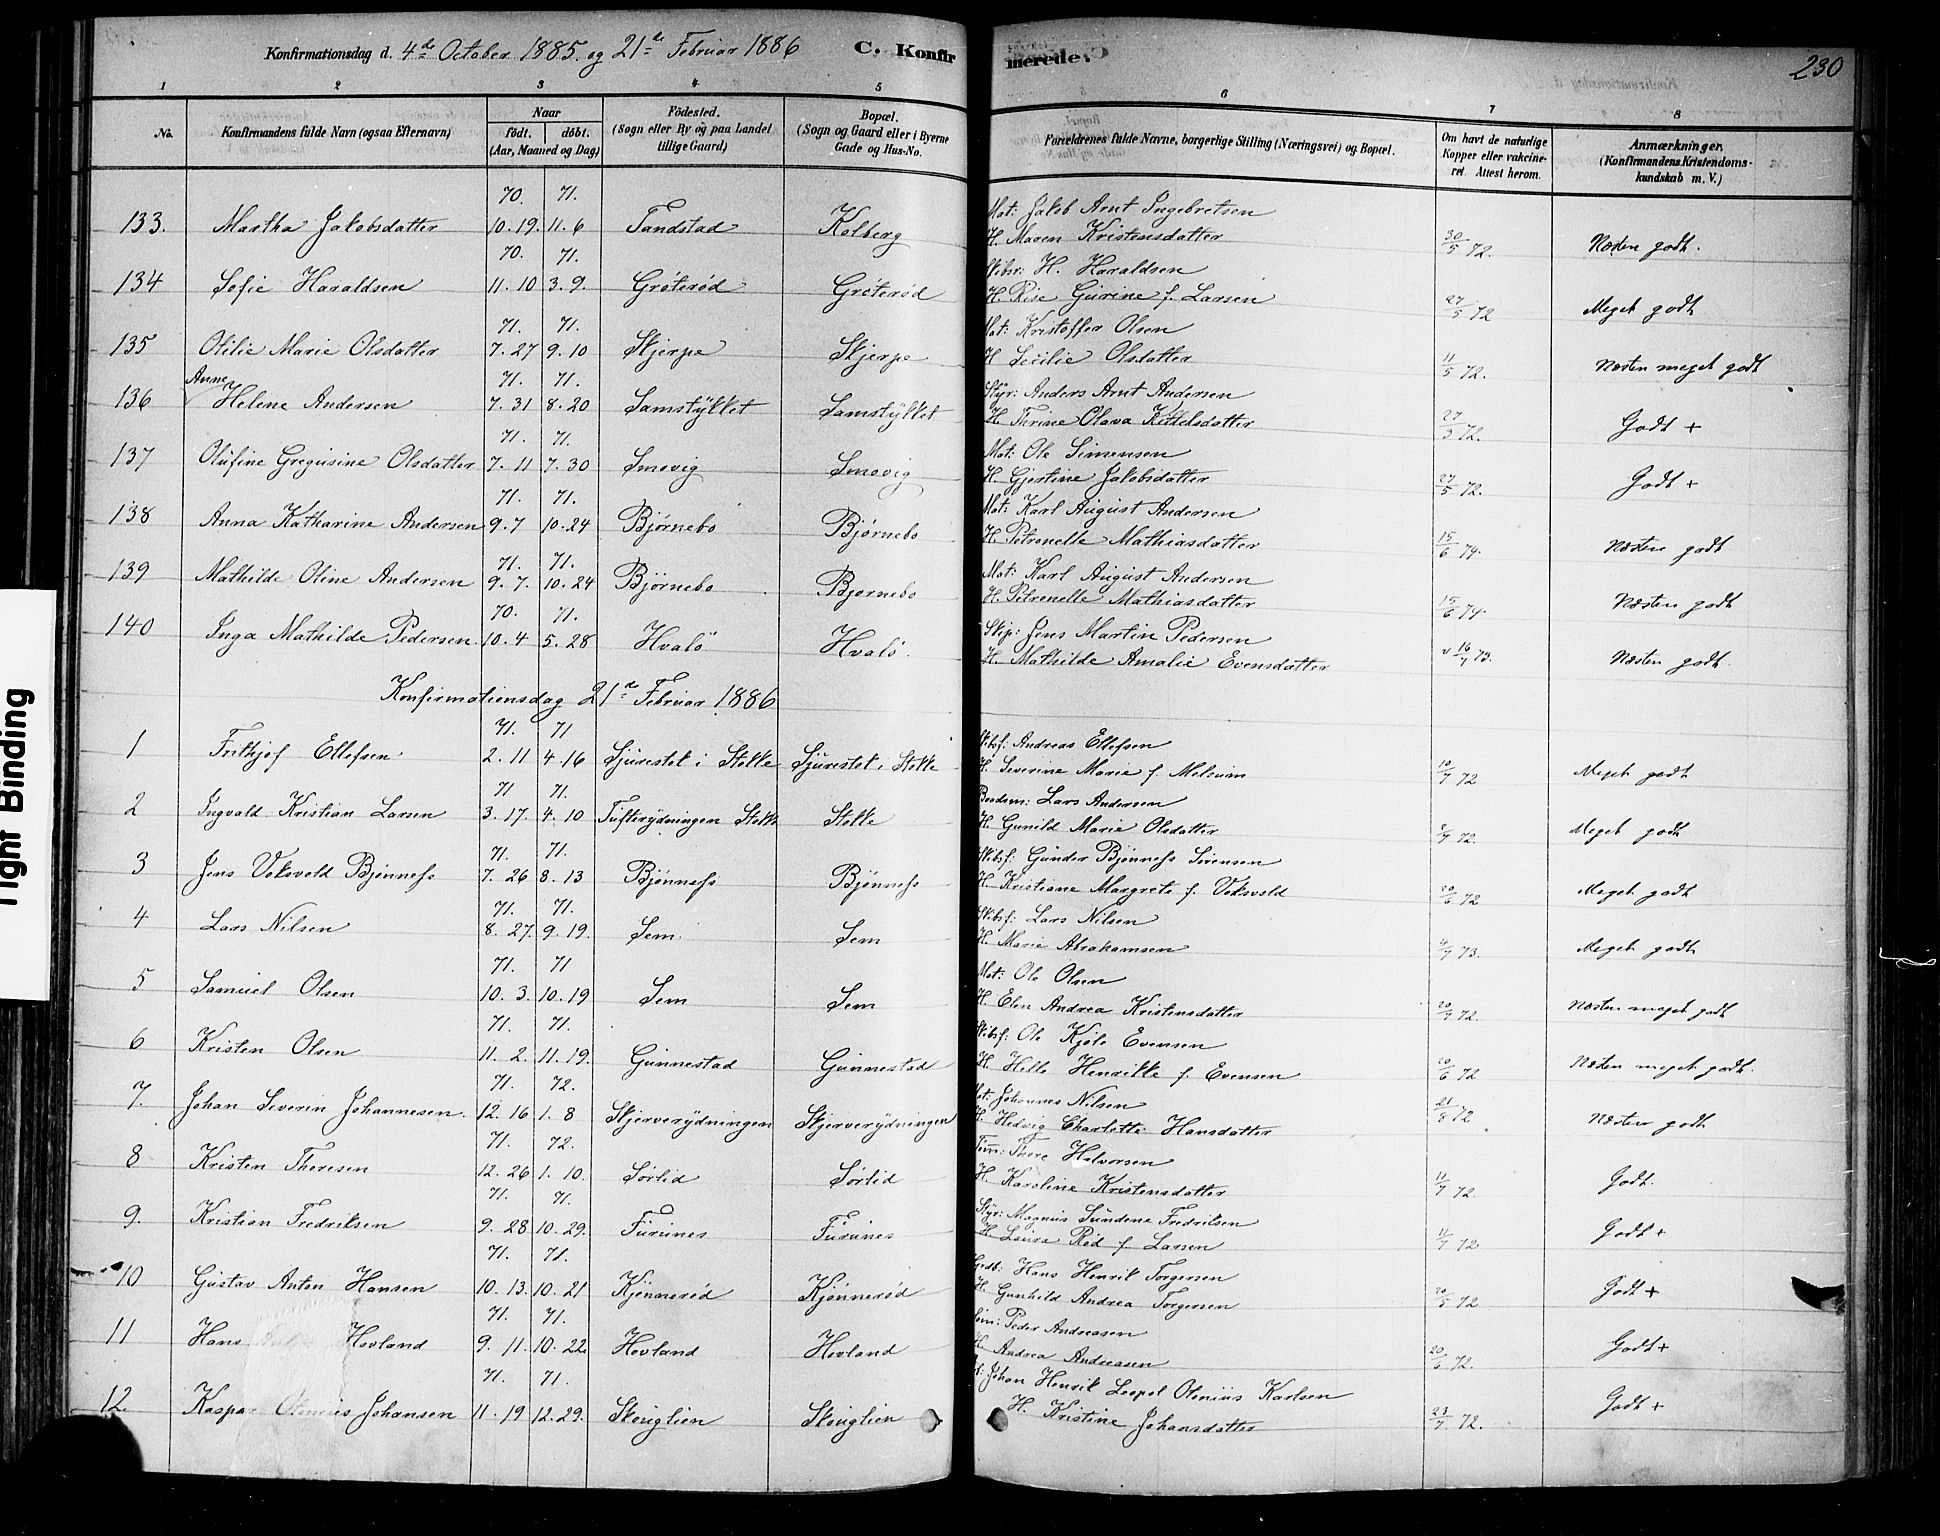 Konfirmationsdag d. 4de October 1885. og 21de Februar 1886 C. Konfirmerede. 230
1 2 3 4 5 6 7 8
No. Konfirmandens fulde Navn (ogsaa Efternavn) Naar født. døbt. (Aar, Maaned og Dag) Fødested. (Sogn eller By og paa Landet tillige Gaard) Bopæl. (Sogn og Gaard eller i Byerne Gade og Hus-No. Forældrenes fulde Navne, borgerlige Stilling (Næringsvei) og Bopæl. Om havt de naturlige Kopper eller vakcineret. Attest herom. Anmærkninger. (Konfirmandens Kristendomskundskab m. V.)
70. 71. Mat: Jakob Arnt Ingebretsen
133. Martha Jakobsdatter 10.19. 11.6 Tandstad Kolberg H. Maren Kristensdatter 30/5 72. Næsten godt.
70. 71. Skibsr: H. Haraldsen
134 Sofie Haraldsen 11.10 3.9. Gröterød Gröterød H. Rise Gurine f. Larsen 27/5 72 Meget godt
71. 71. Mat: Kristoffer Olsen
135 Otilie Marie Olsdatter 7.27 9.10 Skjerpe Skjerpe H. Secilie Olsdatter 11/5 72. Næsten meget godt
Anne 71. 71. Styr: Anders Arnt Andersen
136 Helene Andersen 7.31 8.20 Samstykket Samstykket H. Thrine Olava Kittelsdatter 27/3 72. Godt +
71. 71. Mat: Ole Simensen
137 Olufine Gregusine Olsdatter 7.11 7.30 Smovig Smovig H. Gjertine Jakobsdatter 27/5 72. Godt +
71. 71. Mat: Karl August Andersen
138 Anna Katharine Andersen 9.7 10.24 Bjørnebo Bjørnebo H. Petronelle Mathiasdatter 15/6 74. Næsten godt
71. 71. Mat: Karl August Andersen
139 Mathilde Oline Andersen 9.7. 10.24 Bjørnebo Bjørnebo H. Petronelle Mathiasdatter 15/6 74. Næsten godt
70. 71. Skip: Jens Martin Pedersen
140 Inga Mathilde Pedersen 10.4 5.28 Hvalö Hvalö. H. Mathilde Amalie Evensdatter 16/7 73. Næsten godt.
Konfirmationsdag 21de Februar 1886
71. 71 Skibsf: Andreas Ellefsen
1 Frithjof Ellefsen 2.11 4.16 Sjurestet i Stokke Sjurestet i Stokke H. Severine Marie f. Melsum 10/7 72 Meget godt
71 71. Lars Andersen
2 Ingvald Kristian Larsen 3.17. 4.10 Tufterydningen Stokke Stokke H. Gunild Marie Olsdatter 72. Meget godt
71. 71. Skibsf: Gunder Bjönness Sörensen
3 Jens Veksvold Bjönness 7.26 8.13 Bjönness Bjönness H. Kristiane Margrete f. Veksvold 20/6 72 Meget godt
71. 71. Skibsf: Lars Nilsen
4 Lars Nilsen 8.27. 9.19. Sem Sem H. Marie Abrahamsen 73. Meget godt
71. 71 Mat: Ole Olsen
5 Samuel Olsen 10.3. 10.19 Sem Sem H. Elen Andrea Kristensdatter 20/7 72. Næsten meget godt
71. 71. Skibsf: Ole Kjøle Evensen
6 Kristen Olsen 11.2. 11.19. Gunnestad Gunnestad H. Helle Henrikke f. Evensen 20/6 72 Næsten meget godt.
71. 72. Mat: Johannes Nilsen
7. Johan Severin Johannesen. 12.16 1.8 Skjerverydningen Skjerverydningen H. Hedvig Charlotte Hansdatter 21/8 72 Næsten godt
71. 72. Töm: Thore Halvorsen
8 Kristen Thoresen 12.26 1.10. Sörlid Sörlid H. Karoline Kristensdatter 11/7 72. Godt.
71. 71. Styr: Magnus Sundene Fredriksen
9. Kristian Fredriksen 9.28 10.29. Furunes Furunes H. Laura Röd f. Larsen 11/7 72 Godt +
71. 71. Grdb: Hans Henrik Torgersen
10 Gustav Anton Hansen 10.13. 10.21 Kjönneröd Kjönneröd H. Gunhild Andrea Torgersen 20/5 72 Godt +
71. 71. Töm: Peder Andreasen
11 Hans Hovland 9.11. 10.22 Hovland Hovland H. Andrea Andreasen 20/6 72. Godt +
71. 71. Mat: Johan Henrik Leopol Otenius Karlsen
12. Kaspar Otenius Johansen 11.19 12.29. Skouglien Skouglien H. Kristine Johansdatter 23/7 72. Godt +
Tight Binding